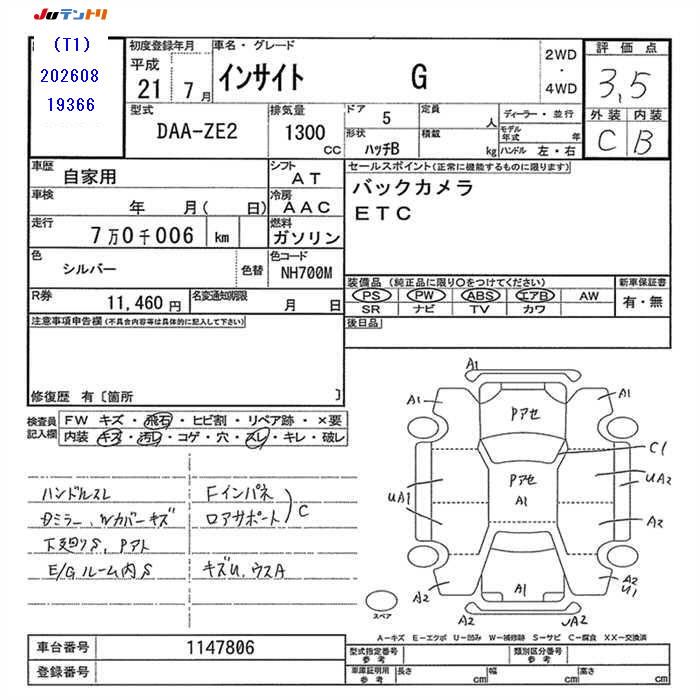 JUテントリ
(T1)
202608
19366
初度登録年月
平成
21 7月
車名・グレード
インサイト G
2WD
・
4WD
評価点
3.5
外装 内装
C B
型式
DAA-ZE2
排気量
1300 CC
ドア 5
形状 ハッチB
定員 人
積載 kg
ディーラー・並行
モデル年式 年
ハンドル 左・右
車歴 自家用
シフト AT
車検 年 月( 日)
冷房 AAC
走行 7万0千006 km
燃料 ガソリン
色 シルバー 色替
色コード NH700M
R券 11,460 円
名変通知期限 月 日
セールスポイント(正常に機能するものに限ります)
バックカメラ
ETC
装備品(純正品に限り○をつけてください)
PS PW ABS エアB AW
SR ナビ TV カワ
新車保証書
有・無
後日品
注意事項申告欄(不具合内容等は具体的に記入して下さい)
修復歴 有〔箇所 〕
検査員記入欄
FW キズ・飛石・ヒビ割・リペア跡・×要
内装・キズ・汚レ・コゲ・穴・スレ・キレ・破レ
ハンドルスレ
Dミラー、Wカバーキズ
下廻りS、Pアト
E/Gルーム内S
Fインパネ
ロアサポート
C
キズU、ウスA
A1
A1
A1
Pアセ
C1
Pアセ
A1
UA1
UA2
A2
A2
A1
A2
U1
A2
UA2
スペア
A―キズ E―エクボ U―凹み W―補修跡 S―サビ C―腐食 XX―交換済
車台番号 1147806
登録番号
型式指定番号 参考
類別区分番号 参考
車庫証明用 参考
長さ cm 幅 cm 高さ cm